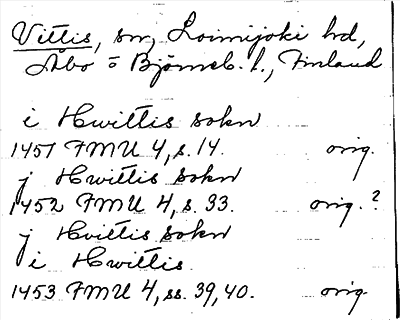 Vittis, sn, Loimijoki hd,
Åbo o Björneb. l., Finland
i Hwittis sokn
1451 FMU 4, s. 14. orig.
j Hwittis sokn
1452 FMU 4, s. 33. orig.?
j Hwittis sokn
i Hwittis
1453 FMU 4, ss. 39, 40. orig